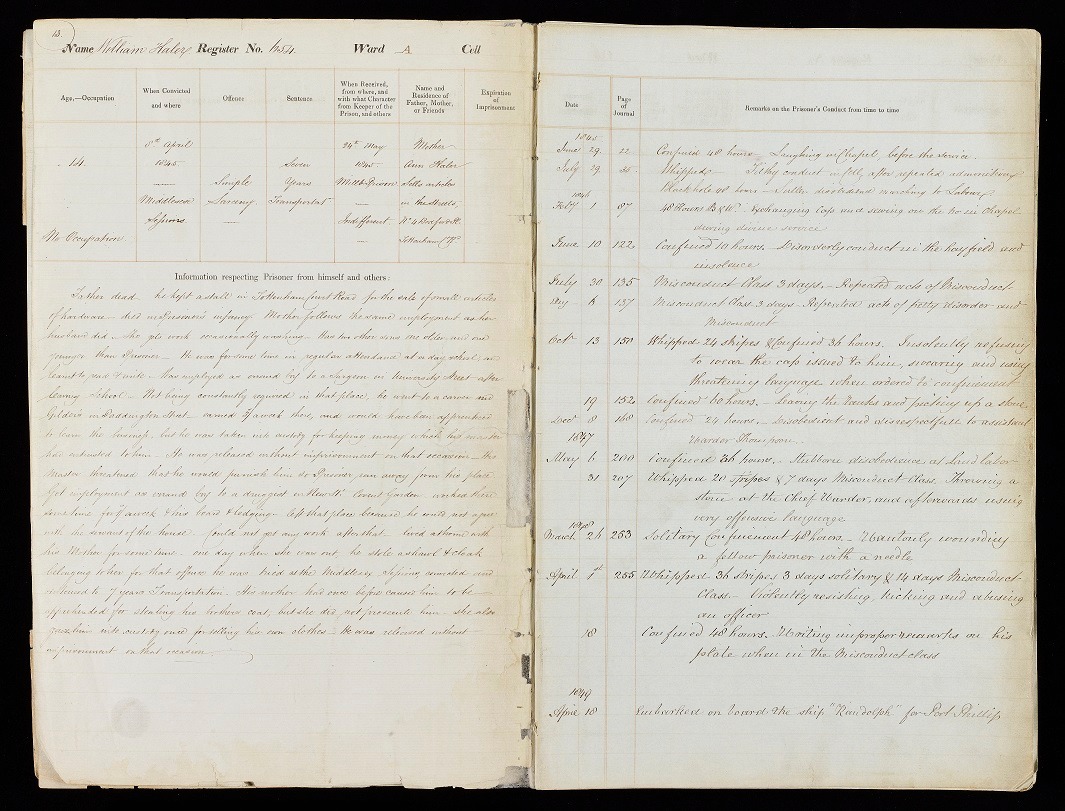 13.
Name William Haley Register No. 1254 Ward A Cell
Age,—Occupation
When Convicted
and where
Offence
Sentence
When Received,
from where, and
with what Character
from Keeper of the
Prison, and others
Name and
Residence of
Father, Mother,
or Friends
Expiration
of
Imprisonment
14.
No Occupation
8th April
1845
Middlesex
Sessions
Simple
Larceny
Seven
Years
Transportat
24th May
1845
Millbk Prison
Indifferent
Mother
Ann Haley
Sells articles
in the Streets,
No 4
Tottenham Ct Rd
Information respecting Prisoner from himself and others:
Father dead. he kept a stall in Tottenham Court Road for the sale of small articles
of hardware – died in Prisoner's infancy. Mother follows the same employment as her
husband did. She gets work occasionally washing – Has two other sons one older and one
younger than Prisoner – He was for some time in regular attendance at a day school, and
learnt to read & write – Was employed as errand boy to a Surgeon in University Street after
leaving School – Not being constantly required in that place, he went to a carver and
Gilders in Paddington Street – earned a week there, and would have been apprenticed
to learn the business, but he was taken into custody for keeping money which his master
had entrusted to him – He was released without imprisonment on that occasion – His
Master threatened that he would punish him & Prisoner ran away from his place
Got employment as errand boy to a druggist in Covent Garden worked there
some time for a week & his board & lodging. left that place because he could not agree
with the servant of the house. Could not get any work after that – lived at home with
his Mother for some time – one day when she was out, he stole a shawl & cloak
belonging to her for that offence he was tried at the Middlesex Sessions, convicted and
sentenced to 7 years Transportation – His mother had once before caused him to be
apprehended for stealing his brothers coat, but she did not prosecute him – she also
gave him into custody once for selling his own clothes – He was released without
imprisonment on that occasion.
Date
Page
of
Journal
Remarks on the Prisoner's Conduct from time to time
1845
June 29. 22 Confined 48 hours – Laughing in Chapel, before the service.
July 29. Whipped – Filthy conduct in after repeated admonitions
Black hole 48 hours – Sullen disobedience marching to Labour
1846
Feby 1 87 48 Hours B & W. Exchanging Cap and sewing on the No in Chapel
during divine service
June 10 122 Confined 10 hours. – Disorderly conduct in the hay field and
insolence
July 30 135 Misconduct Class 3 days. – Repeated acts of Misconduct.
Aug 6 137 Misconduct Class 3 days – Repeated acts of petty disorder and
Misconduct
Octr 13 150 Whipped 24 stripes & Confined 36 hours. Insolently refusing
to wear the cap issued to him, swearing and using
threatening language when ordered to confinement
19 152 Confined 60 hours. – Leaving the Ranks and picking up a stone
Decr 8 168 Confined 24 hours. – Disobedient and disrespectfull to assistant
Warder Thompson.
1847
May 6 200 Confined 36 hours, – Stubborn disobedience at Land labor
31 207 Whipped 20 stripes & 7 days Misconduct Class. Throwing a
stone at the Chief Warder, and afterwards using
very offensive language
1848
March 26 253 Solitary Confinement 48 hours – Wantonly wounding
a fellow prisoner with a needle
April 1st 255 Whipped 36 stripes 3 days solitary & 14 days Misconduct
Class. – Violently resisting, kicking and abusing
an officer
18 Confined 48 hours. – Writing improper remarks on his
plate when in the Misconduct class
1849
April 18 Embarked on board the ship "Randolph" for Port Phillip